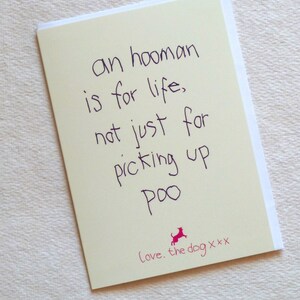 an hooman
is for life,
not just for
picking up
poo
love.. the dog xxx